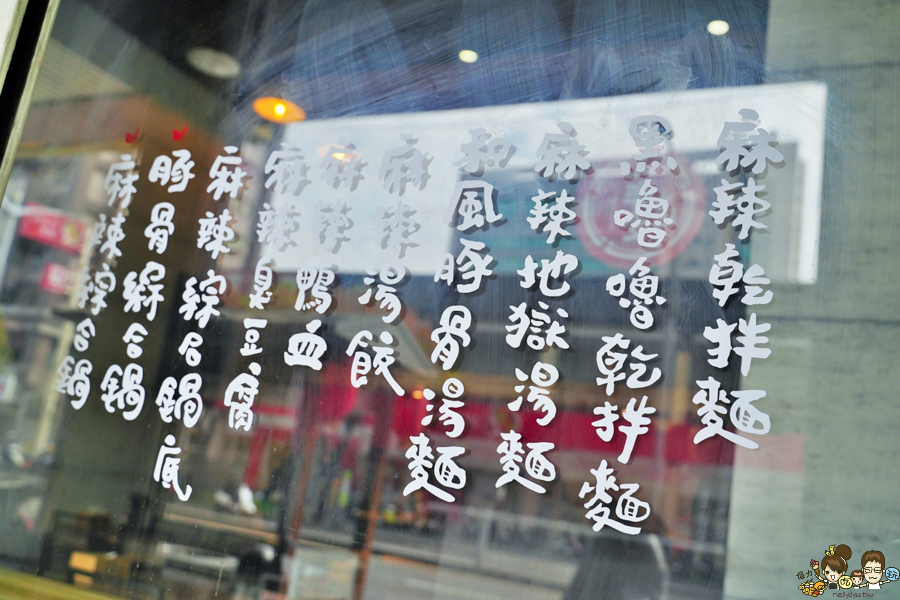 麻辣乾拌麵
黑嚕嚕乾拌麵
麻辣地獄湯麵
和風豚骨湯麵
麻辣湯餃
麻辣鴨血
麻辣臭豆腐
麻辣綜合鍋底
豚骨綜合鍋
麻辣綜合鍋